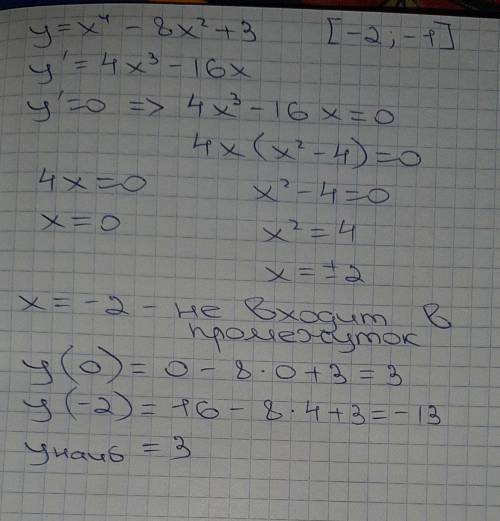 y = x⁴ - 8x² + 3 [-2; -1]
y' = 4x³ - 16x
y' = 0 => 4x³ - 16x = 0
4x(x² - 4) = 0
4x = 0 x² - 4 = 0
x = 0 x² = 4
x = ±2
x = -2 - не входит в
промежуток
y(0) = 0 - 8·0 + 3 = 3
y(-2) = 16 - 8·4 + 3 = -13
yнаиб = 3